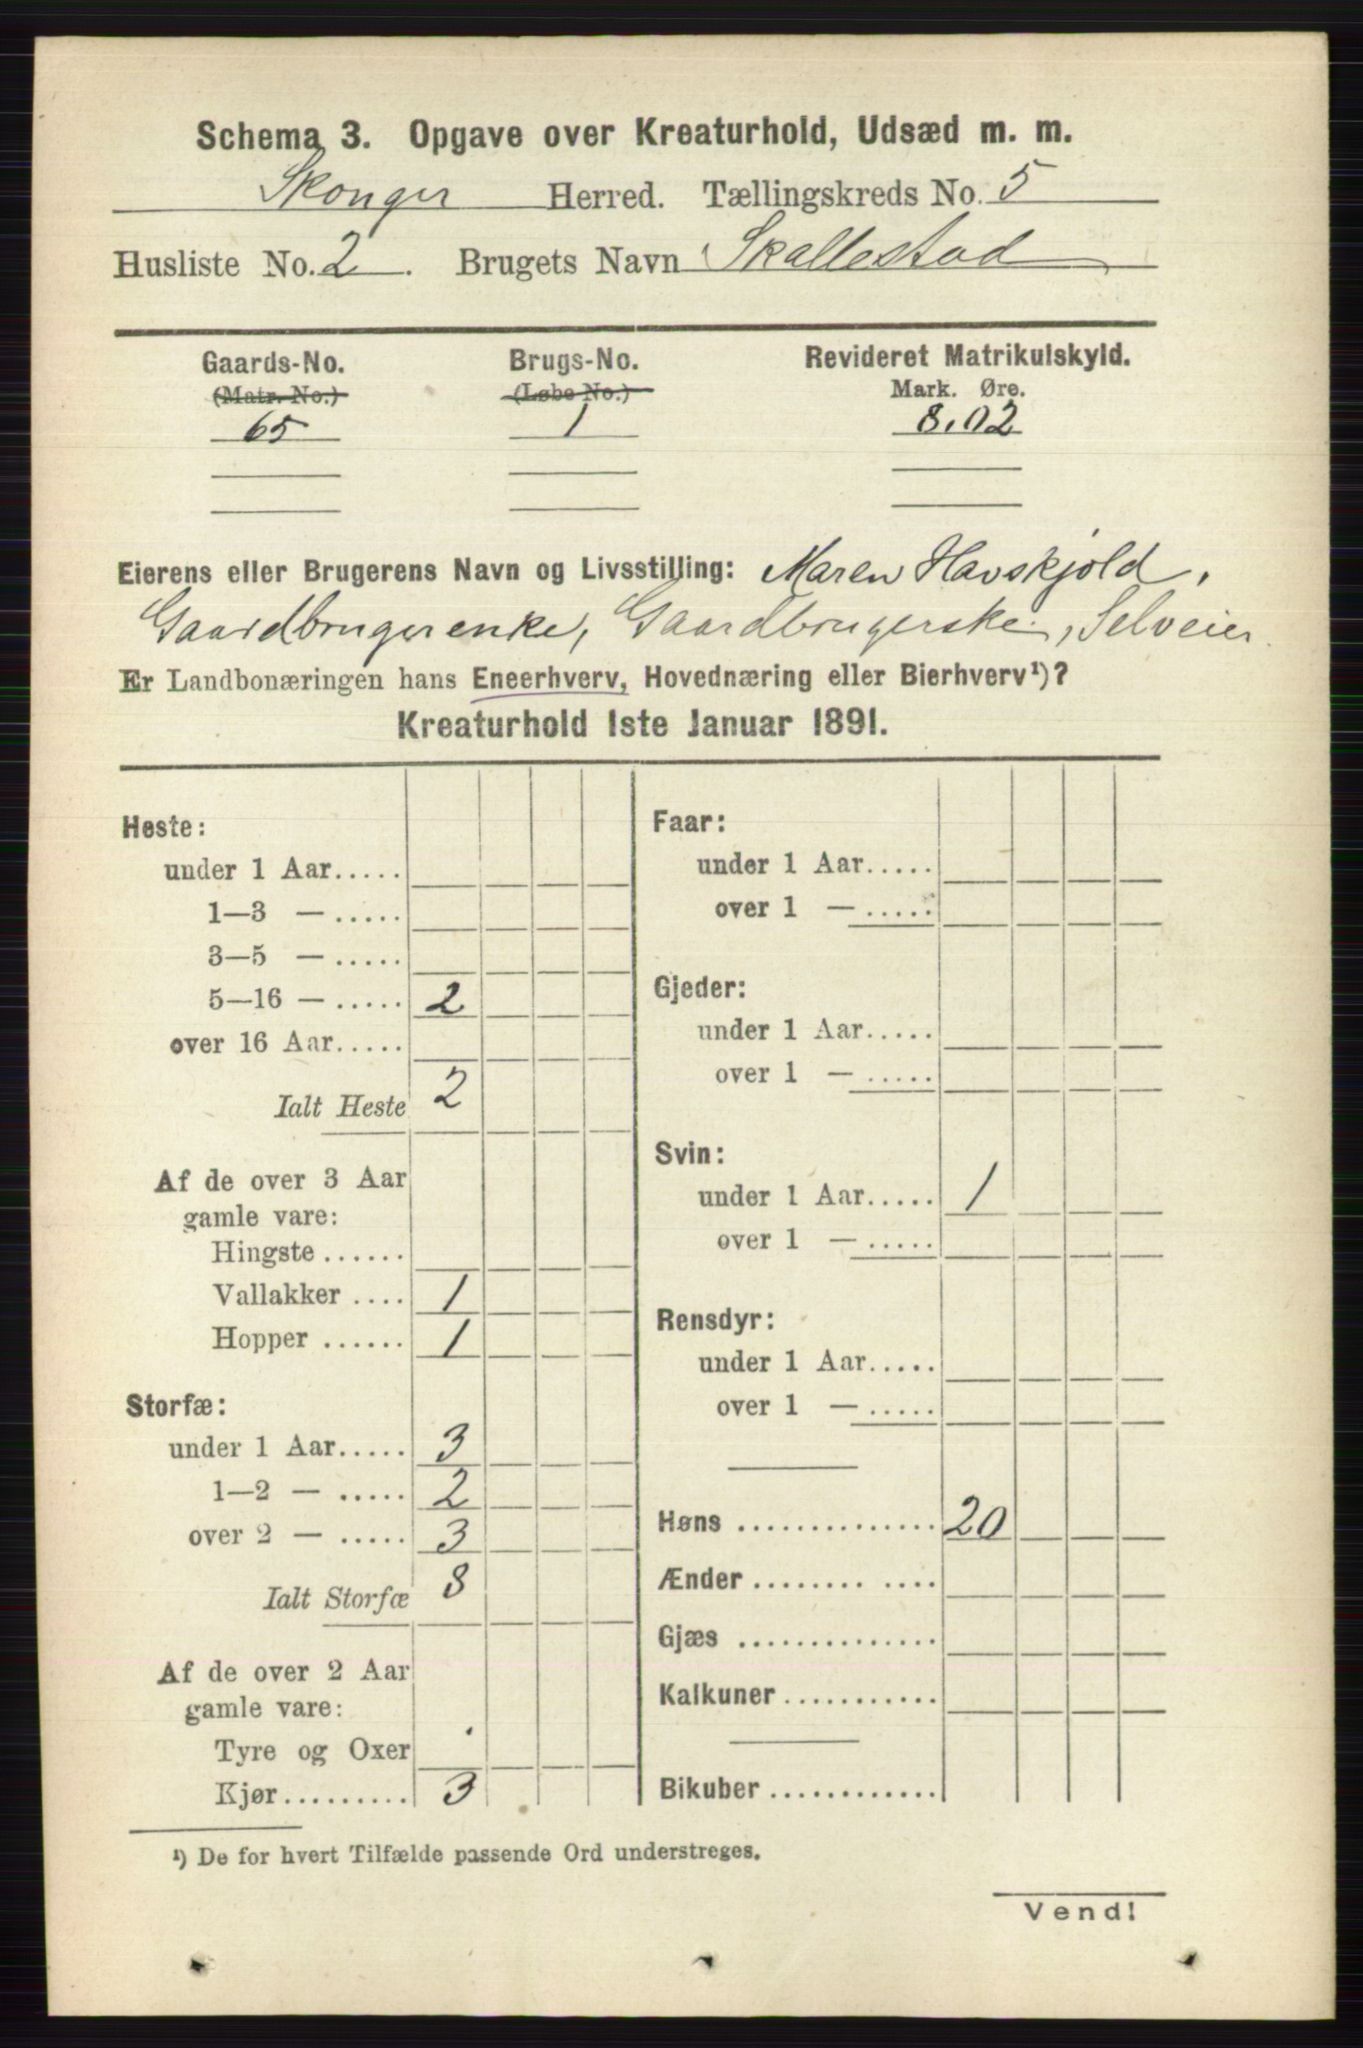 Schema 3. Opgave over Kreaturhold, Udsæd m. m.
Skonger Herred. Tællingskreds No. 5
Husliste No. 2. Brugets Navn Skallestad
Gaards-No. Brugs-No. Revideret Matrikulskyld.
(Matr. No.) (Løbe No.) Mark. Øre.
65 1 8,02
Eierens eller Brugerens Navn og Livsstilling: Maren Havskjold,
Gaardbrugerenke, Gaardbrugerske, Selveier
Er Landbonæringen hans Eneerhverv, Hovednæring eller Bierhverv¹)?
Kreaturhold 1ste Januar 1891.
Heste:
under 1 Aar.....
1—3 — .....
3—5 — .....
5—16 — ..... 2
over 16 Aar.....
Ialt Heste 2
Af de over 3 Aar
gamle vare:
Hingste ......
Vallakker .... 1
Hopper ...... 1
Storfæ:
under 1 Aar..... 3
1—2 — ..... 2
over 2 — ..... 3
Ialt Storfæ 8
Af de over 2 Aar
gamle vare:
Tyre og Oxer
Kjør......... 3
Faar:
under 1 Aar.....
over 1 — .....
Gjeder:
under 1 Aar.....
over 1 — .....
Svin:
under 1 Aar..... 1
over 1 — .....
Rensdyr:
under 1 Aar.....
over 1 — .....
Høns .............. 20
Ænder ........ ....
Gjæs ..............
Kalkuner ...........
Bikuber ............
¹) De for hvert Tilfælde passende Ord understreges.
Vend!